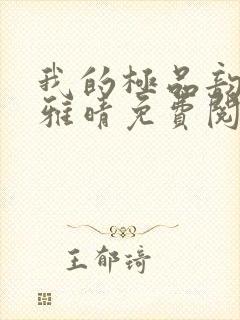 我的極品
雅晴免費閱
王郁琦